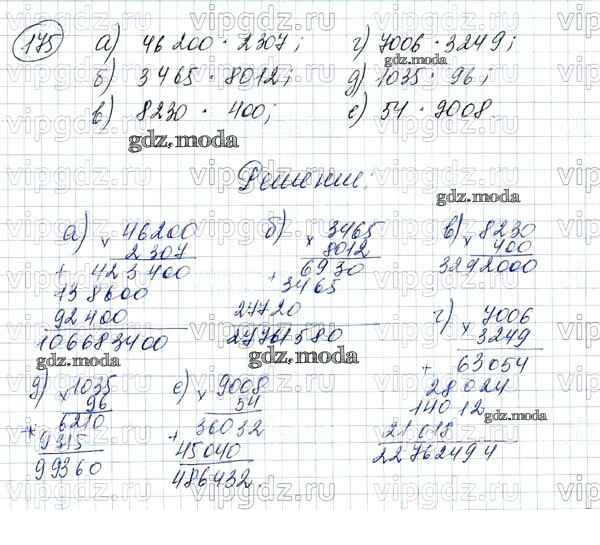 175
а) 46 200 · 2307; г) 7006 · 3249;
б) 3465 · 8012; д) 1035 · 96;
в) 8230 · 400; е) 54 · 9008.
gdz.moda
gdz.moda
Решение:
gdz.moda
а) × 46200
2307
+ 423400
138600
92400
106683400
gdz.moda
б) × 3465
8012
+ 6930
3465
27720
27761580
gdz.moda
в) × 8230
400
3292000
г) × 7006
3249
+ 63054
28024
14012
21018
22762494
gdz.moda
д) × 1035
96
+ 6210
9315
99360
е) × 9008
54
+ 36032
45040
486432.
vipgdz.ru